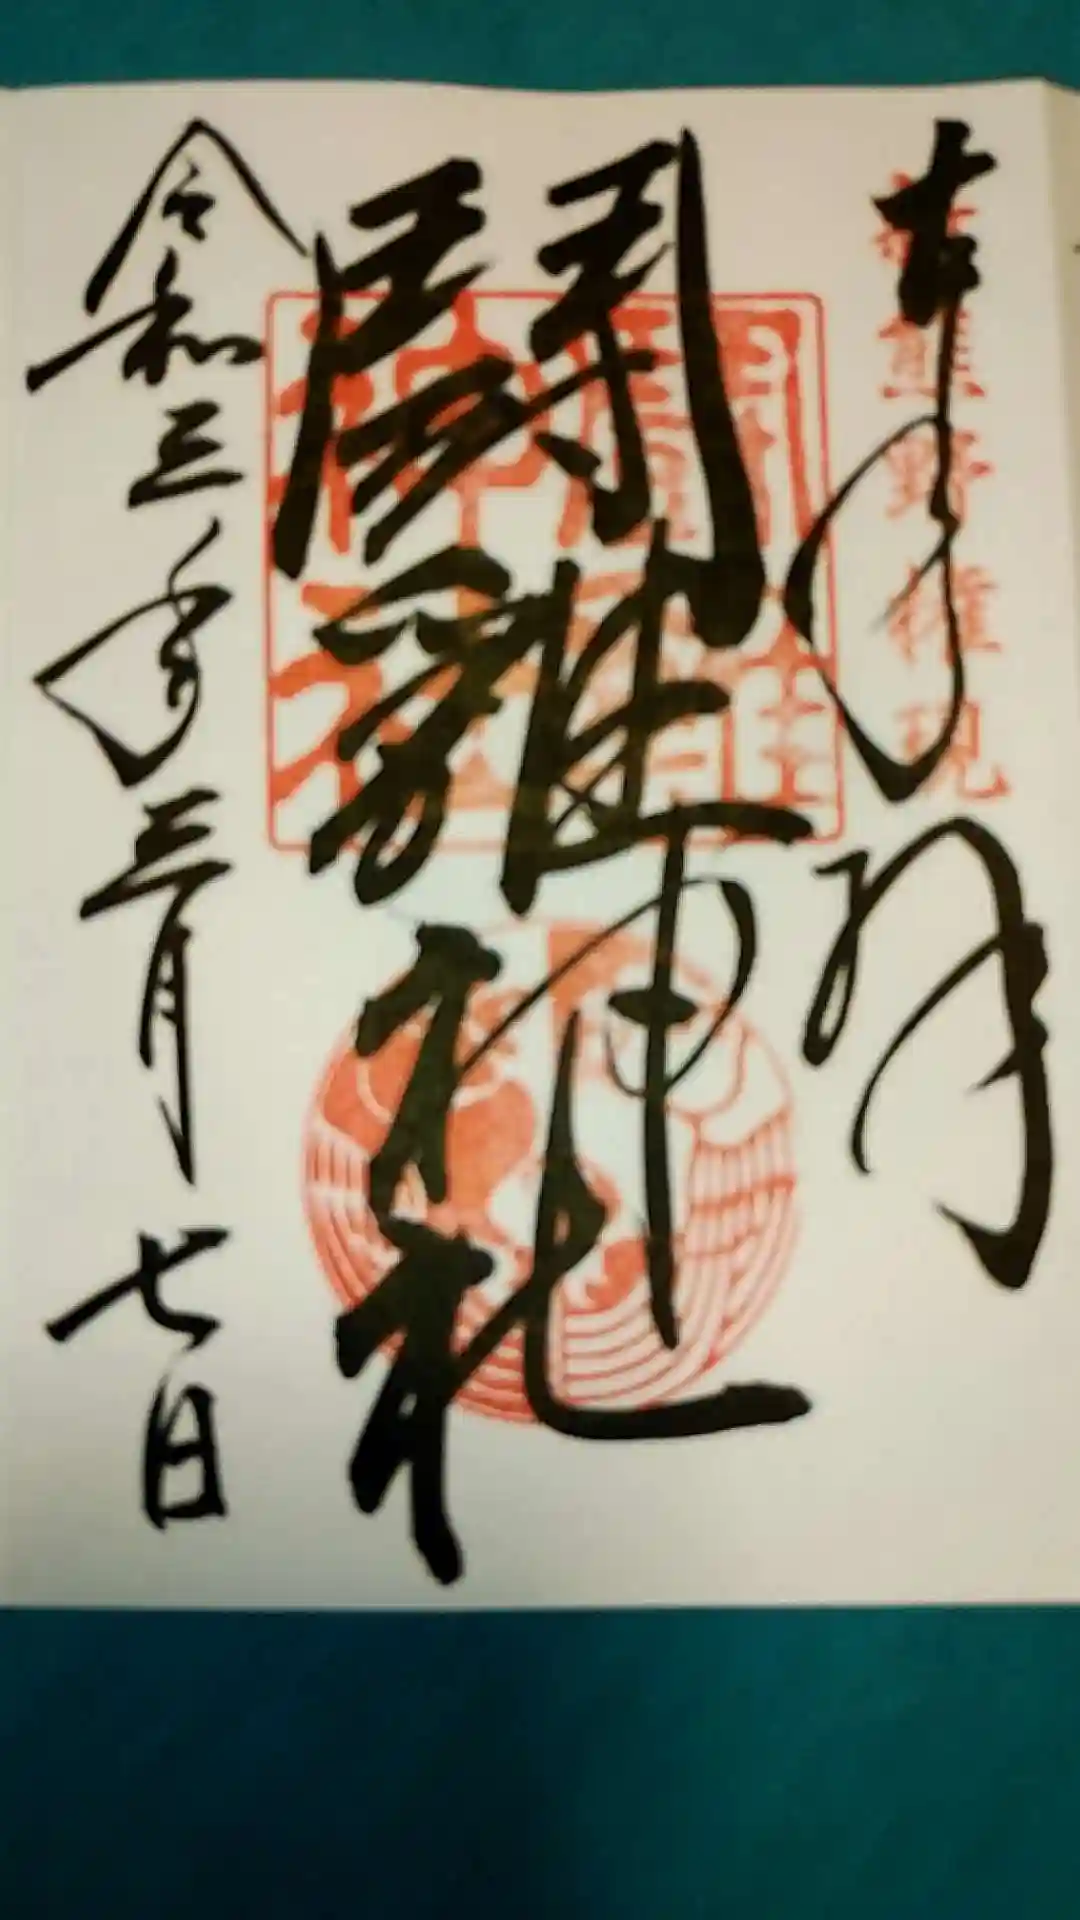 奉拝
新熊野権現
闘雞神社
令和三年三月七日